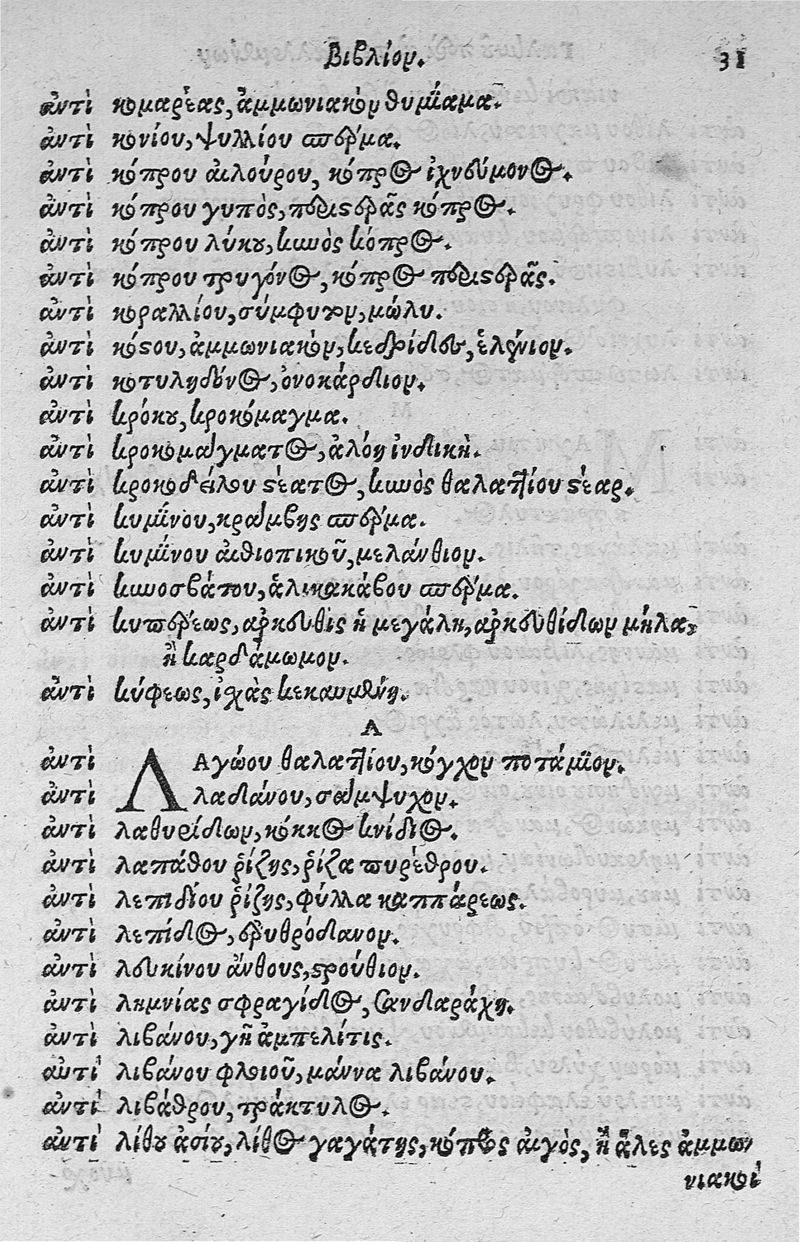 Βιβλίον. 31
ἀντὶ κομαρέας, ἀμμωνιακὸν θυμίαμα.
ἀντὶ κονίου, ψυλλίου σπέρμα.
ἀντὶ κόπρου αἰλούρου, κόπρος ἰχνεύμονος.
ἀντὶ κόπρου γυπὸς, περιστερᾶς κόπρος.
ἀντὶ κόπρου λύκου, κυνὸς κόπρος.
ἀντὶ κόπρου τρυγόνος, κόπρος περιστερᾶς.
ἀντὶ κοραλλίου, σύμφυτον, μώλυ.
ἀντὶ κόστου, ἀμμωνιακὸν, κεδρίδες, ἑλένιον.
ἀντὶ κοτυληδόνος, ὀνοκάρδιον.
ἀντὶ κρόκου, κροκόμαγμα.
ἀντὶ κροκομάγματος, ἀλόη ἰνδική.
ἀντὶ κροκοδείλου στέατος, κυνὸς θαλαττίου στέαρ.
ἀντὶ κυμίνου, κράμβης σπέρμα.
ἀντὶ κυμίνου αἰθιοπικοῦ, μελάνθιον.
ἀντὶ κυνοσβάτου, ἁλικακάβου σπέρμα.
ἀντὶ κυπέρεως, ἀρκευθὶς ἡ μεγάλη, ἀρκευθίδων μῆλα,
ἢ καρδάμωμον.
ἀντὶ κύφεως, ἰχὰς κεκαυμένη.
Λ
ἀντὶ ΛΑγώου θαλαττίου, κόγχον ποτάμιον.
ἀντὶ λαδάνου, σάμψυχον.
ἀντὶ λαθυρίδων, κόκκος κνίδιος.
ἀντὶ λαπάθου ῥίζης, ῥίζα πυρέθρου.
ἀντὶ λεπιδίου ῥίζης, φύλλα καππάρεως.
ἀντὶ λεπίδος, ἐρυθρόδανον.
ἀντὶ λευκίνου ἄνθους, στρούθιον.
ἀντὶ λημνίας σφραγίδος, σανδαράχη.
ἀντὶ λιβάνου, γῆ ἀμπελίτις.
ἀντὶ λιβάνου φλοιοῦ, μάννα λιβάνου.
ἀντὶ λιβάθρου, τράκτυλος.
ἀντὶ λίθου ἀσίου, λίθος γαγάτης, κόπρος αἰγὸς, ἢ ἅλες ἀμμω-
νιακοί